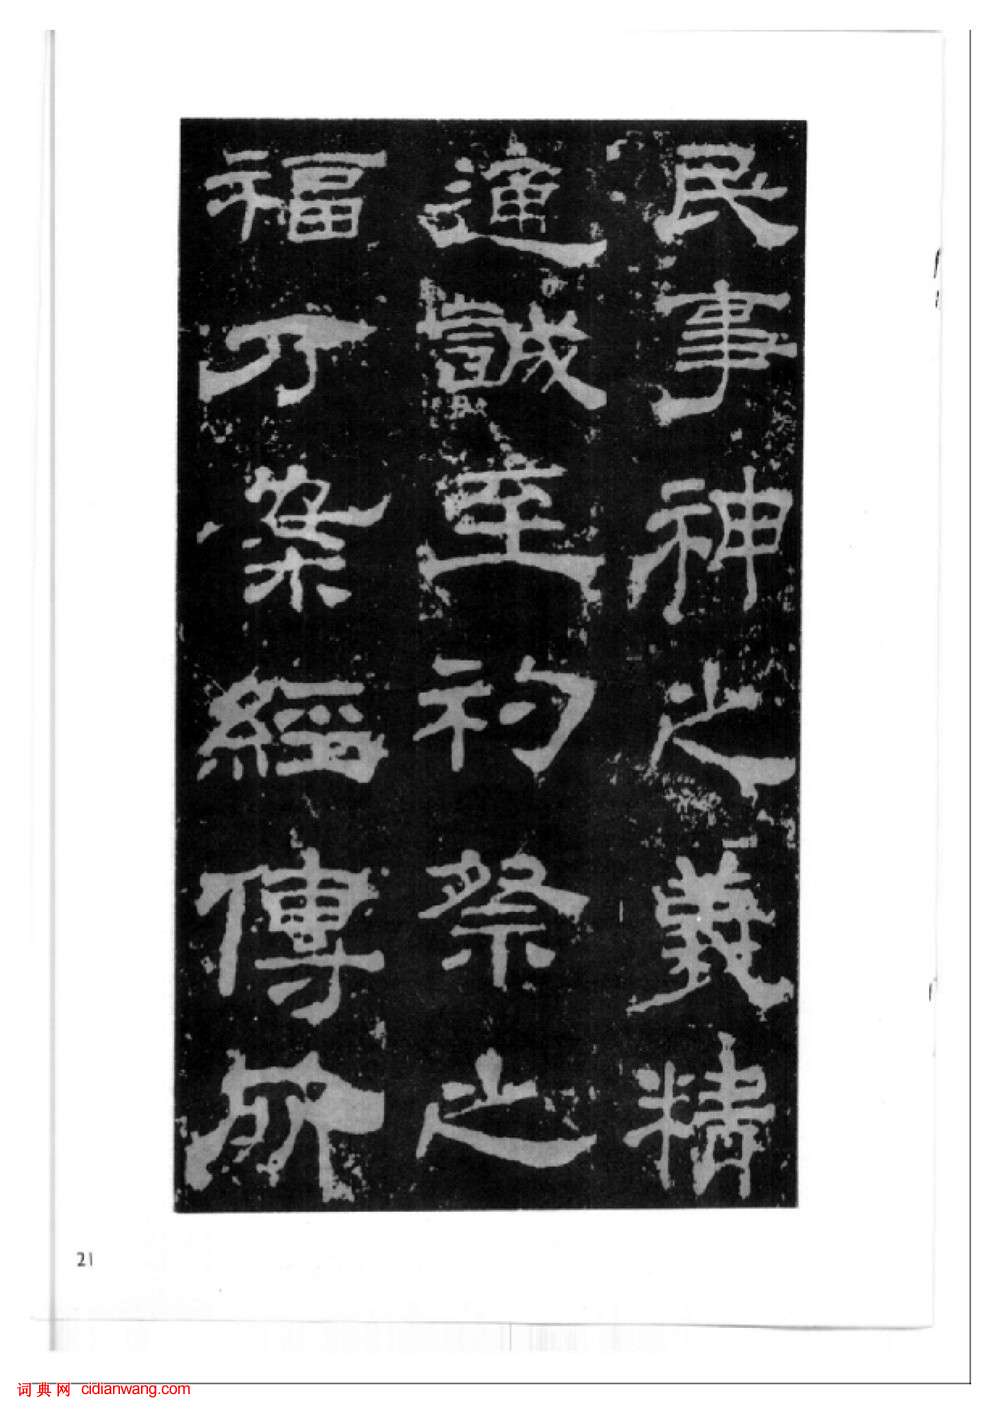 民事神之義精
通誠至礿祭之
福乃案經傳所
21
词典网 cidianwang.com